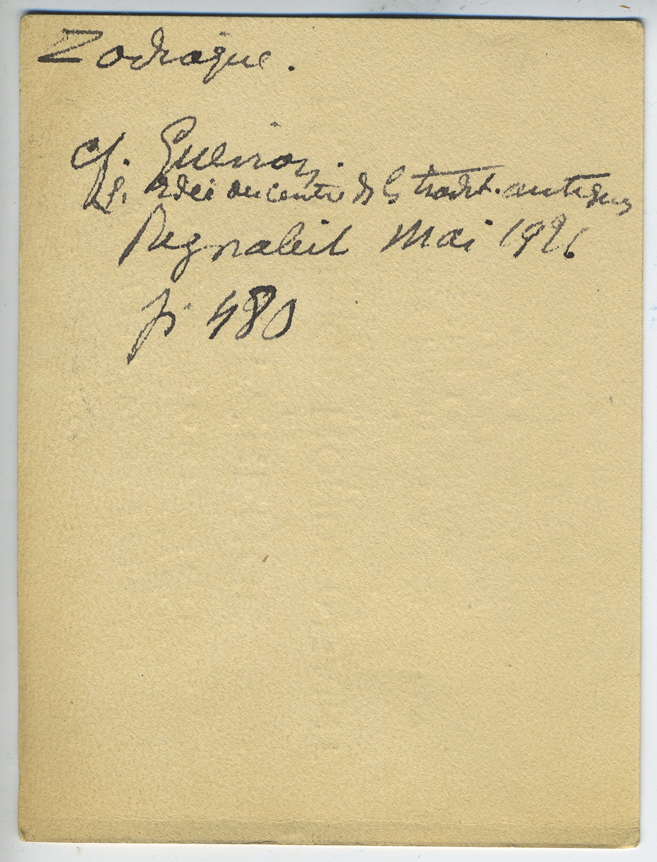 Zodiaque.
cf. Guénon.
L'idée du centre ds les tradit. antiques
Regnabit Mai 1926
p. 480